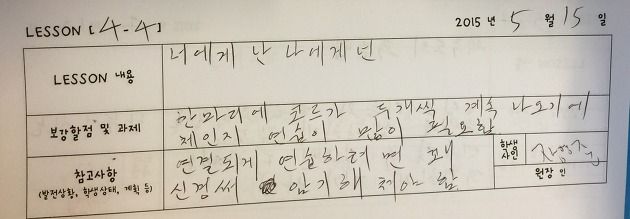 LESSON [ 4-4 ] 2015 년 5 월 15 일
LESSON 내용
너에게 난 나에게 넌
보강할점 및 과제
한마디에 코드가 두개씩 계속 나오기에
체인지 연습이 많이 필요함
참고사항
(발전상황, 학생상태, 계획 등)
연결되게 연습하려면 꽤
신경써 암기해 쳐야 함
학생
사인
원장 인